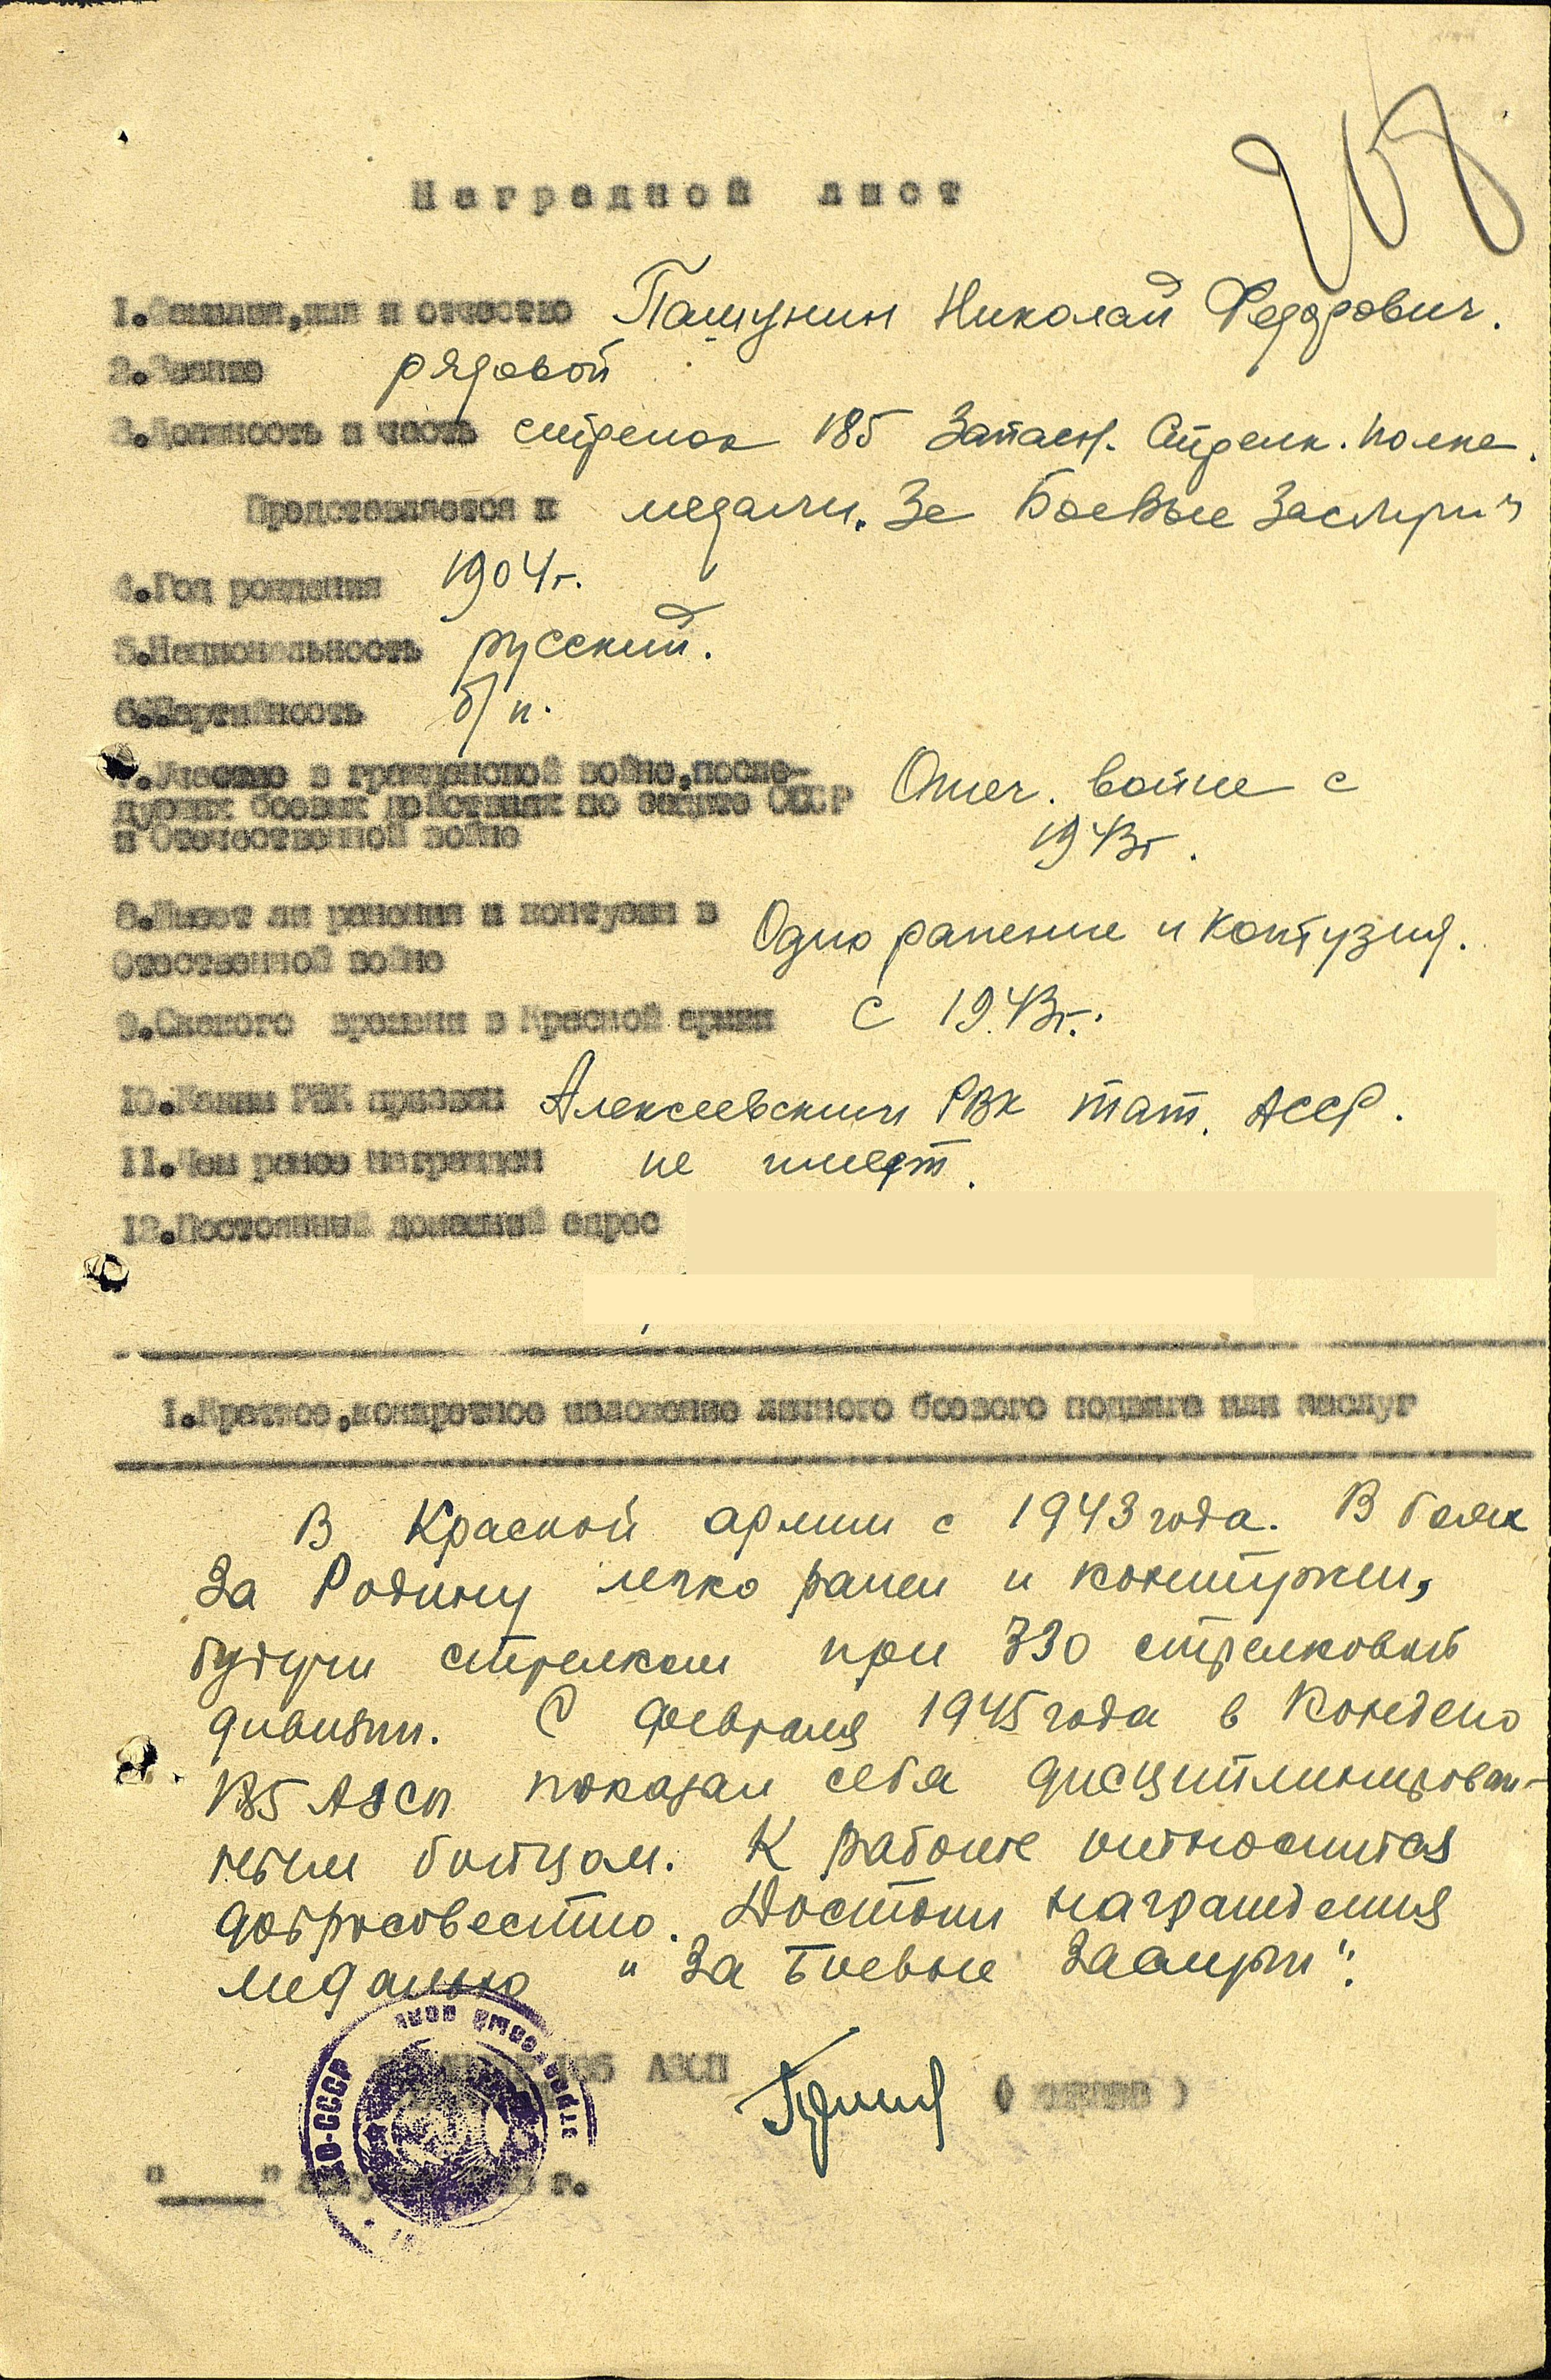 Наградной лист
1.Фамилия,имя и отчество Пашунин Николай Федорович.
2.Звание рядовой
3.Должность и часть стрелок 185 Запасн. Стрелк. полка.
Представляется к медали. За Боевые Заслуги
4.Год рождения 1904г.
5.Национальность русский.
6.Партийность б/п.
7.Участие в гражданской войне,после-
дующих боевых действиях по защите СССР
и Отечественной войне Отеч. войне с
1943г.
8.Имеет ли ранения и контузии в
Отечественной войне Одно ранение и контузия.
9.Скакого времени в Красной армии с 1943г.
10.Каким РВК призван Алексеевским РВК тат. АССР.
11.Чем ранее награжден не имеет.
12.Постоянный домашний адрес
1.Краткое,конкретное изложение личного боевого подвига или заслуг
В Красной армии с 1943 года. В боях
за Родину легко ранен и контужен,
будучи стрелком при 330 стрелковой
дивизии. С февраля 1945 года в
185 АЗСП показал себя дисциплинирован-
ным бойцом. К работе относится
добросовестно. Достоин награждения
медалью "За Боевые Заслуги".
185 АЗСП
"____" августа г.